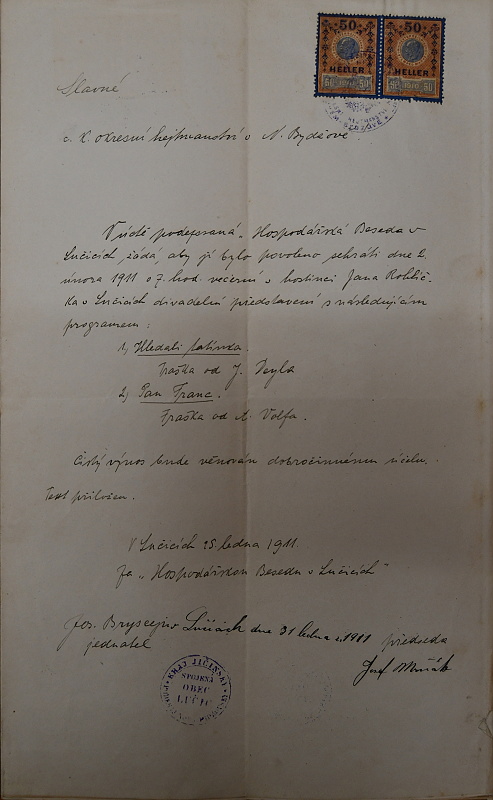 50 50
HELLER HELLER
50 50 50
Slavné
c. k. okresní hejtmanství v N. Bydžově
V úctě podepsaná „Hospodářská Beseda v
Lučicích žádá, aby jí bylo povoleno sehráti dne 2.
února 1911 o 7. hod. večerní v hostinci Jana Rohlíč-
ka v Lučicích divadelní představení s následujícím
programem:
1) Hledali tatínka.
Fraška od J.
2) Pan Franc.
Fraška od A. Volfa.
Čistý výnos bude věnován dobročinnému účelu.
Text přiložen.
V Lučicích 25. ledna 1911.
Za „Hospodářskou Besedu v Lučicích"
Jos.
Lučicích dne 31 ledna 1911
předseda
jednatel
Josef
KRAJ JIČÍNSKÝ
SPOJENÁ
OBEC
LUČIC